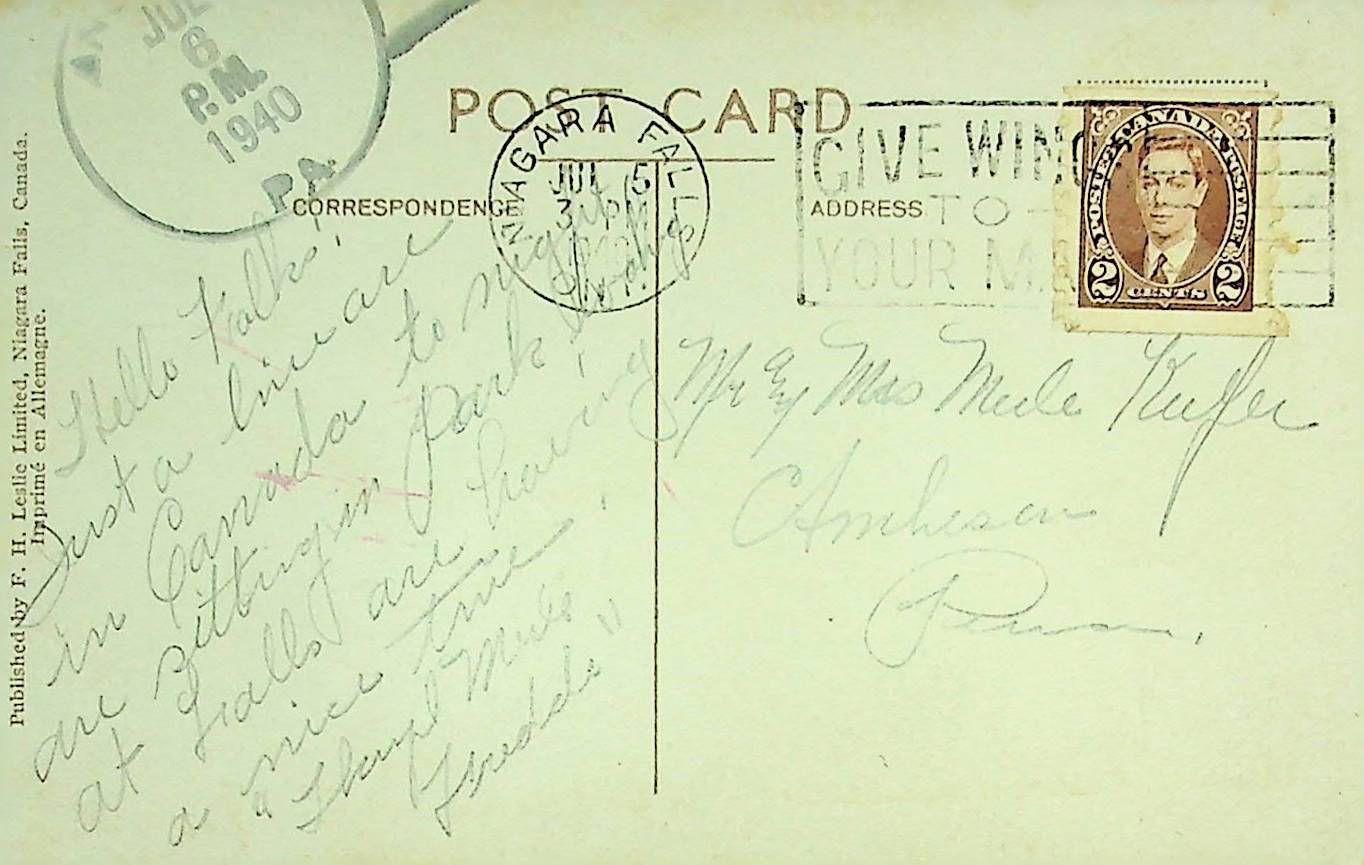 JUL
6
P.M.
1940
PA.
POST CARD
CORRESPONDENCE
ADDRESS
NIAGARA FALLS
JUL 5
3 PM
GIVE WING
TO
YOUR MA
POSTES CANADA POSTAGE
2 CENTS 2
Published by F. H. Leslie Limited, Niagara Falls, Canada.
Imprimé en Allemagne.
Hello Folks,
Just a line are
in Canada to night
are sitting in park looking
at Falls are having
a nice time.
Merle
Mr & Mrs Merle
Penna.